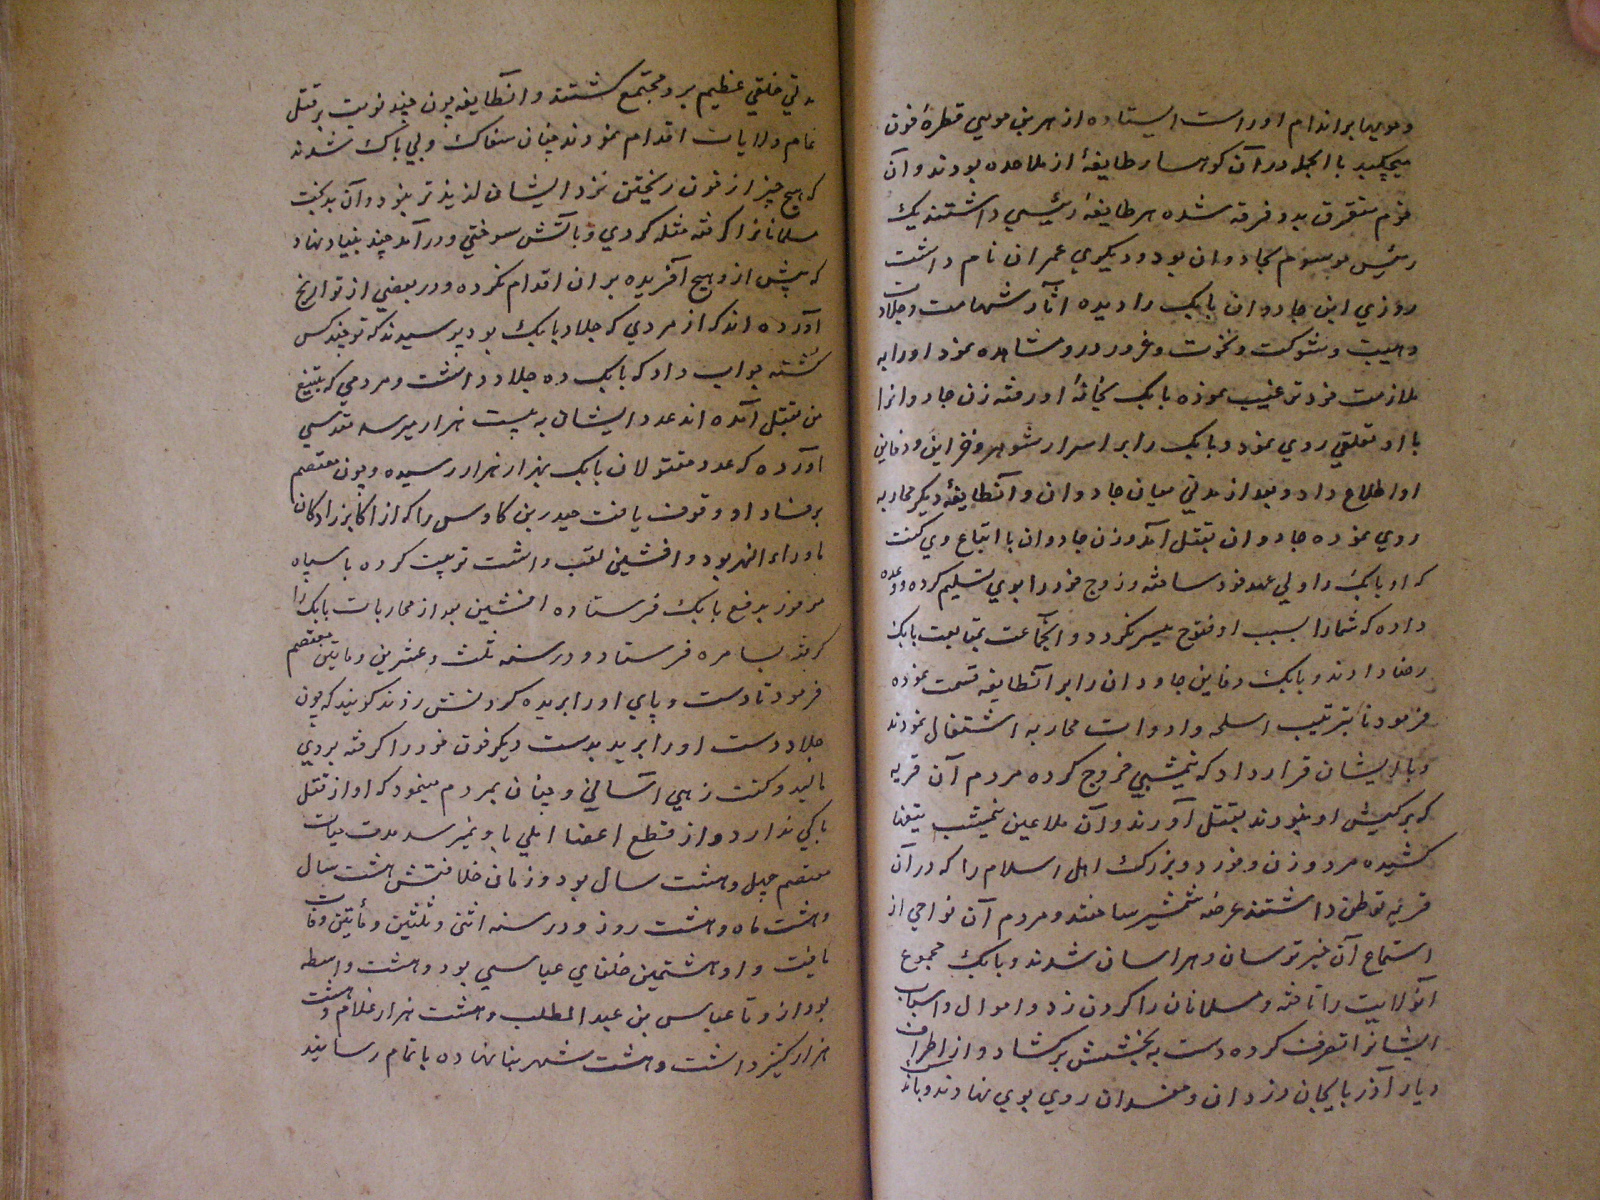 و مویها بر اندام او راست ایستاده از هر بن مویی قطرهٔ خون
میچکید با الجمله در آن کوهسار طایفهٔ از ملاحده بودند و آن
قوم متفرق بدو فرقه شده هر طایفهٔ رئیسی داشتند یک
رئیس موسوم بجاودان بود و دیگری عمران نام داشت
روزی این جاودان بابک را دیده آثار شهامت و جلادت
و هیبت و شوکت و نخوت و غرور در و مشاهده نمود او را به
ملازمت خود ترغیب نموده بابک بخانهٔ او رفته زن جاودانرا
با او تعلقی روی نمود و بابک را بر اسرار شوهر و خزاین و دفاین
او اطلاع داد و بعد از مدتی میان جاودان و آنطایفهٔ دیگر محاربه
روی نموده جاودان بقتل آمد و زن جاودان با اتباع وی گفت
که او بابک را ولی عهد خود ساخته و زوج خود را بوی تسلیم کرده و وعده
داده که شما را بسبب او فتوح میسر گردد و انجماعت بمتابعت بابک
رضا دادند و بابک دفاین جاودان را بر آنطایفه قسمت نموده
فرمود تا بترتیب اسلحه و ادوات محاربه اشتغال نمودند
و با ایشان قرار داد که نیمشبی خروج کرده مردم آن قریه
که بر کیش او نبودند بقتل آورند و آن ملاعین نیمشب تیغها
کشیده مرد و زن و خورد و بزرگ اهل اسلام را که در آن
قریه توطن داشتند عرضه شمشیر ساختند و مردم آن نواحی از
استماع آن خبر ترسان و هراسان شدند و بابک مجموع
آنولایت را تاخته و مسلمانان را گردن زد و اموال و اسباب
ایشانرا تصرف کرده دست به بخشش بر گشاد و از اطراف
دیار آذربایجان دزدان و مفسدان روی بوی نهادند و باندک
مدتی خلقی عظیم بر و مجتمع گشتند و آنطایفه چون چند نوبت بر قتل
تمام ولایات اقدام نمودند چنان سفاک و بی باک شدند
که هیچ چیز از خون ریختن نزد ایشان لذیذتر نبود و آن بدبخت
مسلمانانرا گرفته مثله کردی و بآتش سوختی و در آمد چند بنیاد نهاد
که پیش از و هیچ آفریده بر ان اقدام نکرده و در بعضی از تواریخ
آورده اند که از مردی که جلاد بابک بود پرسیدند که تو چند کس
کشته جواب داد که بابک ده جلاد داشت و مردمی که بتیغ
من بقتل آمده اند عدد ایشان به بیست هزار میرسد مقدسی
آورده که عدد مقتولان بابک بهزار هزار رسیده و چون معتصم
بر فساد او وقوف یافت حیدر بن کاوس را که از اکابر زادگان
ماوراء النهر بود و افشین لقب داشت تربیت کرده با سپاه
موفور بدفع بابک فرستاده افشین بعد از محاربات بابک را
گرفته بسامره فرستاد و در سنه ثلث و عشرین و مایتین معتصم
فرمود تا دست و پای او را بریده گردنش زدند گویند که چون
جلاد دست او را برید بدست دیگر خون خود را گرفته بروی
مالید و گفت زهی آسانی و چنان بمردم مینمود که او از قتل
باکی ندارد و از قطع اعضا المی باو نمیرسد مدت حیات
معتصم چهل و هشت سال بود و زمان خلافتش هشت سال
و هشت ماه و هشت روز و در سنه اثنی و ثلثین و مأیتین وفات
یافت و او هشتمین خلفای عباسی بود و هشت واسطه
بود از و تا عباس بن عبد المطلب و هشت هزار غلام و هشت
هزار کنیز داشت و هشت شهر بنا نهاده باتمام رسانید